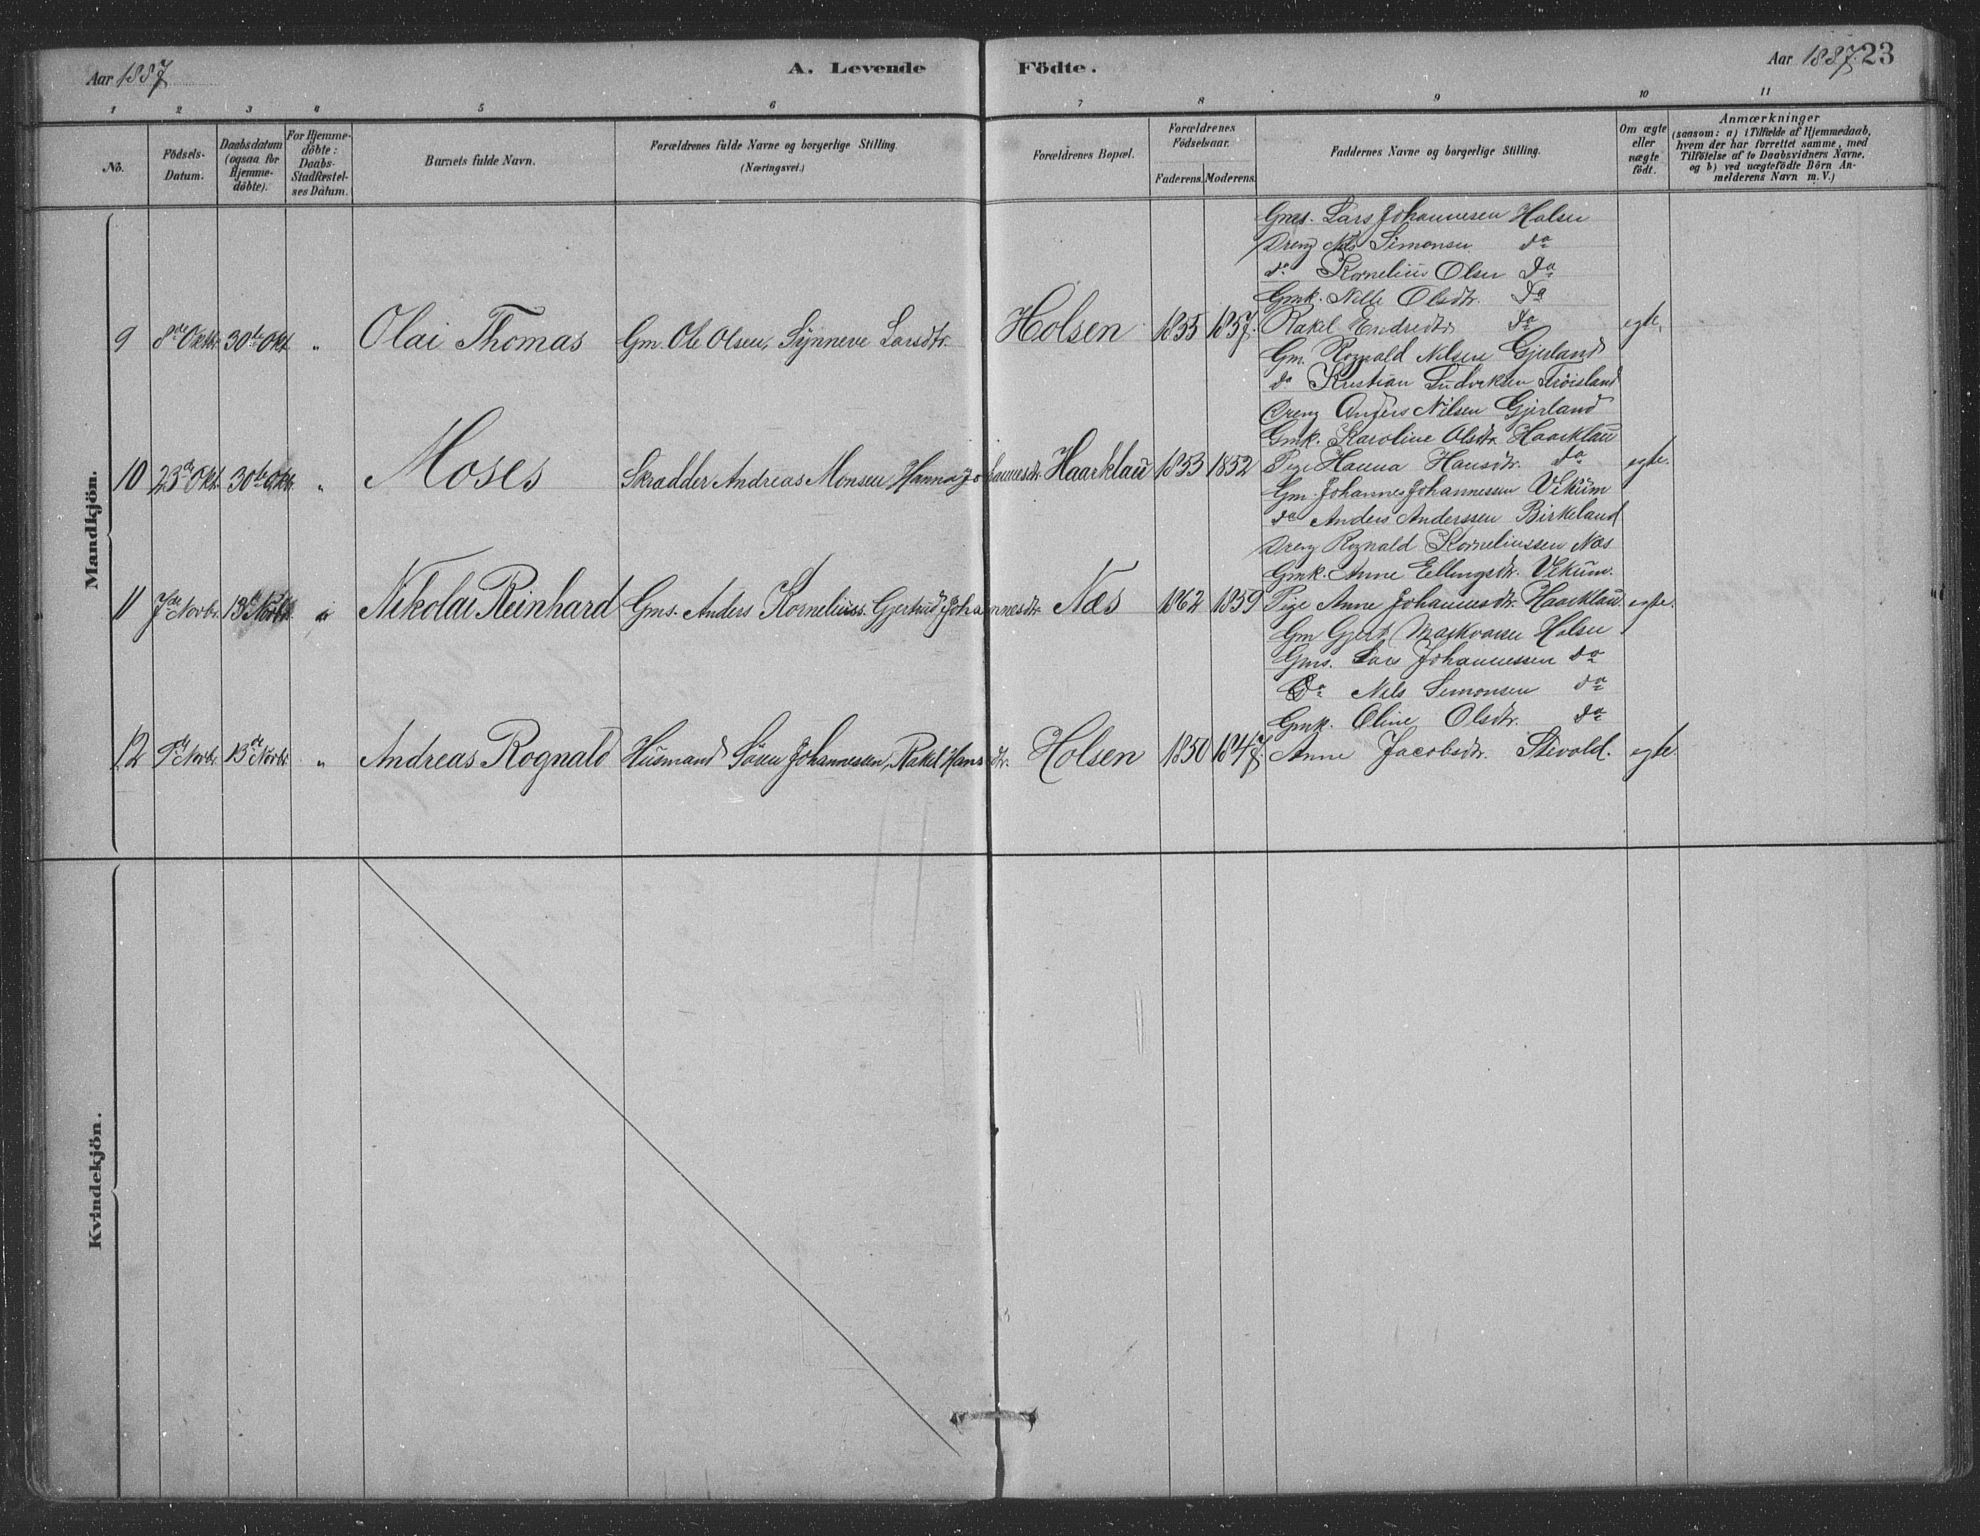 Aar 1887
A. Levende Födte.
Aar 1887. 23
1 2 3 4 5 6 7 8 9 10 11
No.
Födsels-Datum.
Daabsdatum (ogsaa for Hjemmedöbte).
For Hjemmedöbte: Daabs-Stadfæstelses Datum.
Barnets fulde Navn.
Forældrenes fulde Navne og borgerlige Stilling. (Næringsvei.)
Forældrenes Bopæl.
Forældrenes Födselsaar.
Faderens. Moderens.
Faddernes Navne og borgerlige Stilling.
Om ægte eller uægte födt.
Anmærkninger
(saasom: a) i Tilfælde af Hjemmedaab,
hvem der har forrettet samme, med
Tilföielse af to Daabsvidners Navne,
og b) ved uægtefödte Börn An-
melderens Navn m. V.)
Mandkjön.
Gms. Lars Johannesen Holsen
Dreng Nils Simonsen do
do Kornelius Olsen do
Gmk. Nille Olsdtr. do
9 8de Oktbr. 30te Okt. " Olai Thomas Gm. Ole Olsen, Synneve Larsdtr. Holsen 1855 1857. Rakel Endredtr do egte.
Gm. Rognald Nilsen Gjerland
do Kristian Ludviksen Trøisland
Dreng Anders Nilsen Gjerland
Gmk. Karoline Olsdtr. Haarklau
10 23de Okt. 30te Okt. " Moses Skrædder Andreas Monsen Hanna Johannesdtr. Haarklau 1853 1852 Pige Hanna Hansdtr. do egte.
Gm. Johannes Johannessen Vikum
do Anders Anderssen Birkeland
Dreng Rognald Korneliussen Næs
Gmk. Anne Ellingsdtr. Vikum.
11 7de Novbr. 13de Novbr. " Nikolai Reinhard Gms. Anders Korneliuss. Gjertrud Johannesdtr. Næs 1862 1859 Pige Anne Johannesdtr. Haarklau egte.
Gm Gjert Markvarsen Holsen
Gms. Lars Johannessen do
Do Nils Simonsen do
Gmk. Oline Olsdtr. do
12 9de Novbr. 13de Novbr. " Andreas Rognald Husmand Søren Johannessen, Rakel Hansdtr. Holsen 1850 1847. Anne Jacobsdtr. Stevold. egte.
Kvindekjön.